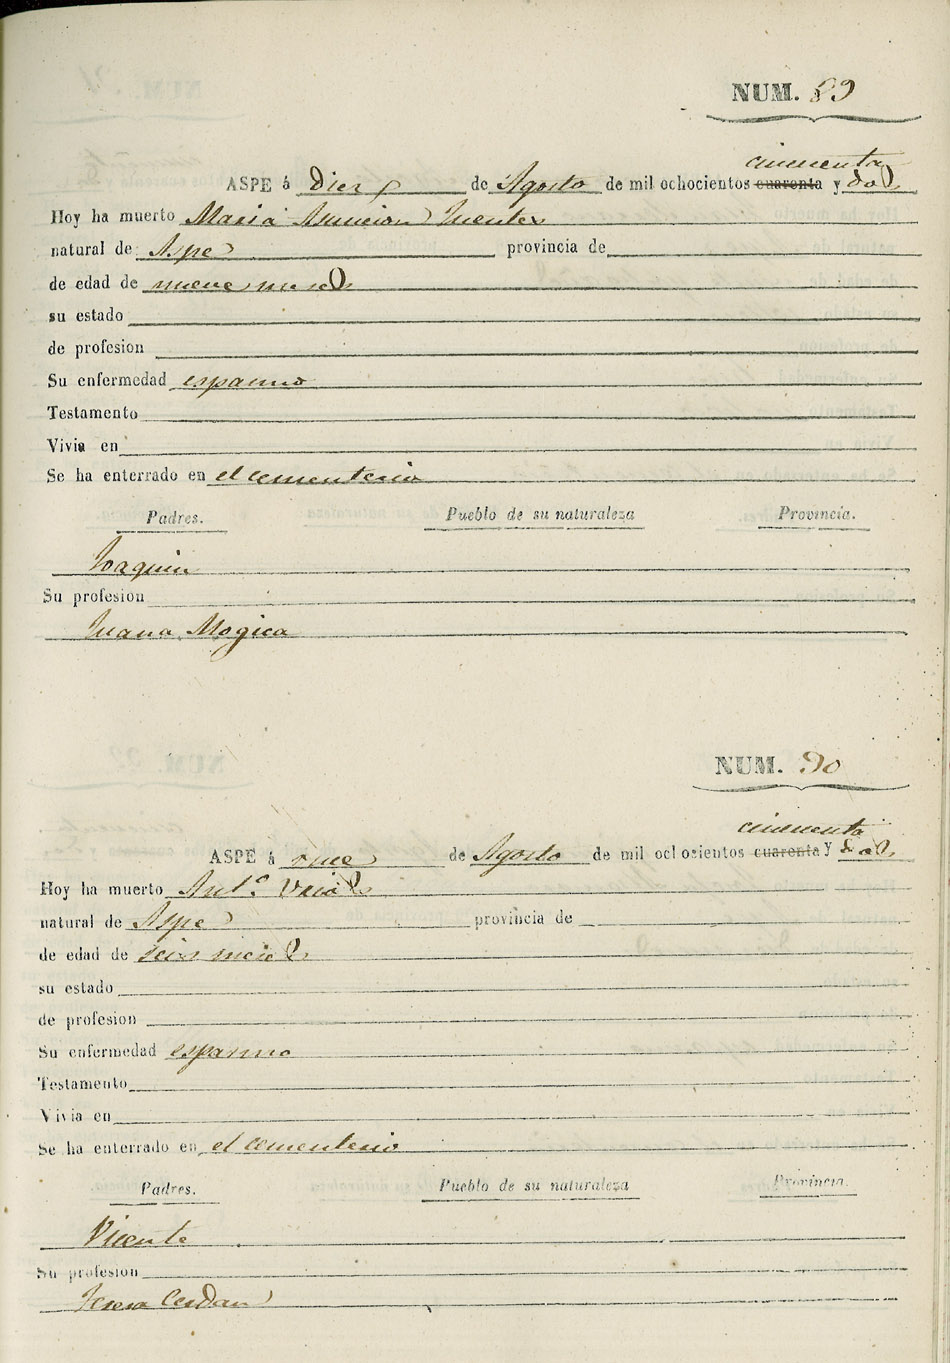 NUM. 89
cincuenta
ASPE á Diez de Agosto de mil ochocientos cuarenta y dos
Hoy ha muerto Maria Asuncion Fuentes
natural de Aspe provincia de
de edad de nueve meses
su estado
de profesion
Su enfermedad espasmo
Testamento
Vivia en
Se ha enterrado en el cementerio
Padres. Pueblo de su naturaleza Provincia.
Joaquin
Su profesion
Juana Mogica
NUM. 90
cincuenta
ASPE á once de Agosto de mil ochocientos cuarenta y dos
Hoy ha muerto Ant.ª
natural de Aspe provincia de
de edad de seis meses
su estado
de profesion
Su enfermedad espasmo
Testamento
Vivia en
Se ha enterrado en el cementerio
Padres. Pueblo de su naturaleza Provincia.
Vicente
Su profesion
Teresa Cerdan